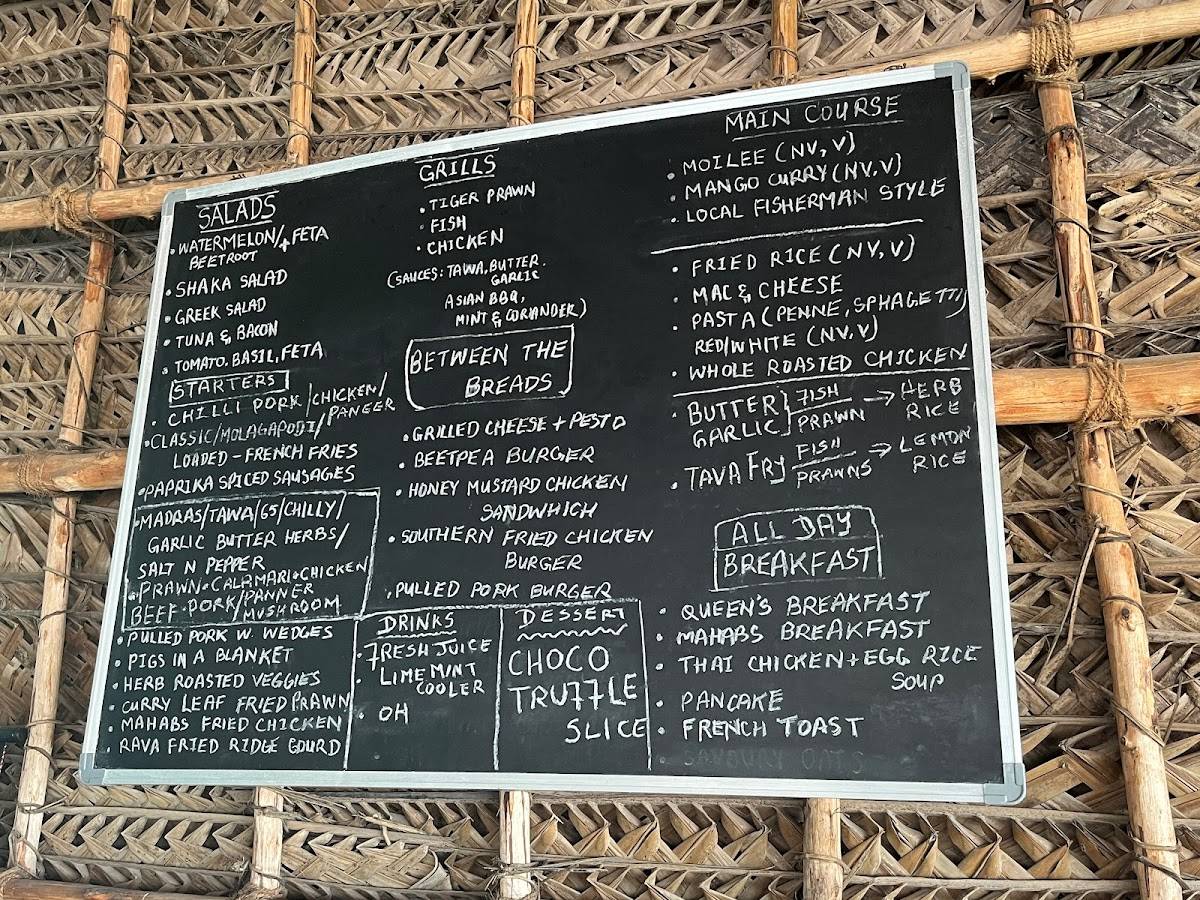 SALADS
• WATERMELON/+FETA
BEETROOT
• SHAKA SALAD
• GREEK SALAD
• TUNA & BACON
• TOMATO, BASIL, FETA
STARTERS
• CHILLI PORK/CHICKEN/
PANEER
• CLASSIC/MOLAGAPODI/
LOADED - FRENCH FRIES
• PAPRIKA SPICED SAUSAGES
• MADRAS/TAWA/65/CHILLY/
GARLIC BUTTER HERBS/
SALT N PEPPER
• PRAWN • CALAMARI • CHICKEN
BEEF • PORK/PANNER
MUSHROOM
• PULLED PORK W. WEDGES
• PIGS IN A BLANKET
• HERB ROASTED VEGGIES
• CURRY LEAF FRIED PRAWN
• MAHABS FRIED CHICKEN
• RAVA FRIED RIDGE GOURD
GRILLS
• TIGER PRAWN
• FISH
• CHICKEN
(SAUCES: TAWA, BUTTER.
GARLIC
ASIAN BBQ,
MINT & CORIANDER)
BETWEEN THE
BREADS
• GRILLED CHEESE + PESTO
• BEETPEA BURGER
• HONEY MUSTARD CHICKEN
SANDWHICH
• SOUTHERN FRIED CHICKEN
BURGER
• PULLED PORK BURGER
DRINKS
• FRESH JUICE
• LIME MINT
COOLER
• OH
DESSERT
CHOCO
TRUFFLE
SLICE
MAIN COURSE
• MOILEE (NV, V)
• MANGO CURRY (NV, V)
• LOCAL FISHERMAN STYLE
• FRIED RICE (NV, V)
• MAC & CHEESE
• PASTA (PENNE, SPHAGETTI)
RED/WHITE (NV, V)
• WHOLE ROASTED CHICKEN
• BUTTER } FISH → HERB
GARLIC } PRAWN RICE
• TAVA FRY FISH → LEMON
PRAWNS RICE
ALL DAY
BREAKFAST
• QUEEN'S BREAKFAST
• MAHABS BREAKFAST
• THAI CHICKEN + EGG RICE
SOUP
• PANCAKE
• FRENCH TOAST
• SAVOURY OATS